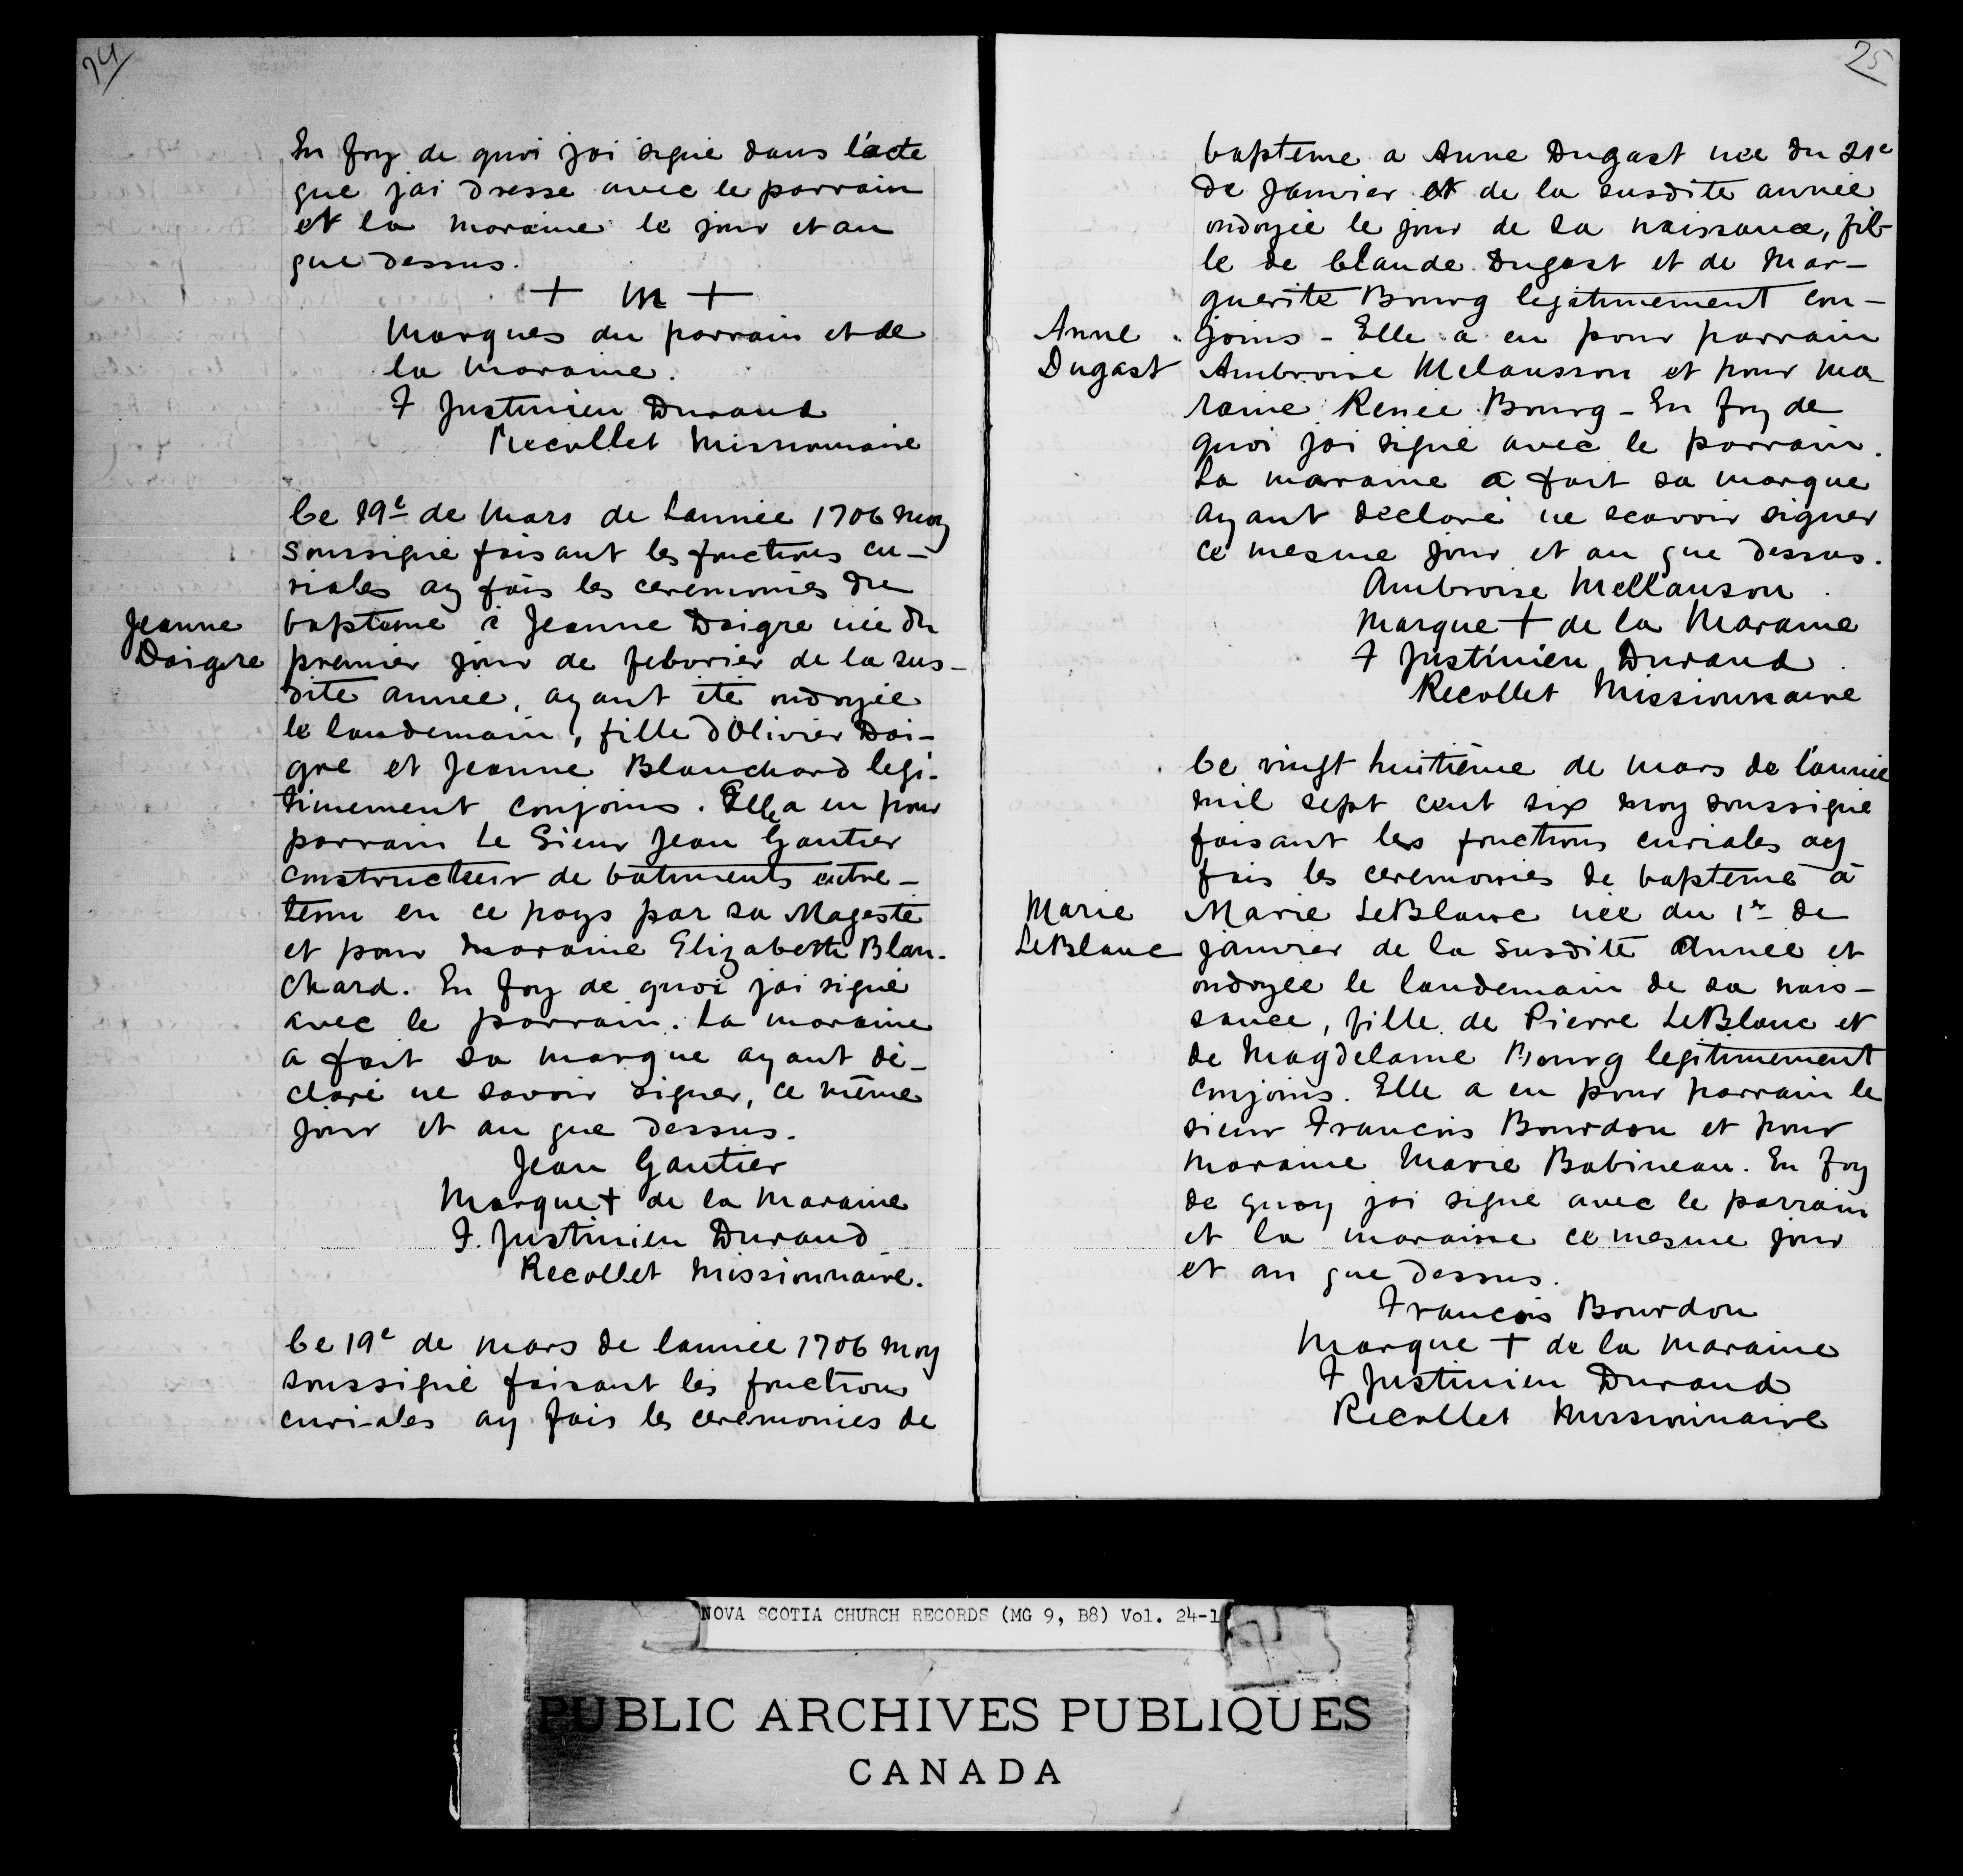 24
En foy de quoi jai signé dans l'acte
que jai dresse avec le parrain
et la maraine le jour et an
que dessus.
+ m +
Marques du parrain et de
la Maraine.
F Justinien Durand
Recollet Missionnaire
Ce 19e de Mars de Lannée 1706 moy
Soussigné faisant les fonctions cu-
riales ay fais les ceremonies du
Jeanne Daigre
bapteme à Jeanne Daigre née du
premier jour de feborier de la sus-
dite année, ayant été ondoyée
le landemain, fille dOlivier Dai-
gre et Jeanne Blanchard legi-
timement conjoins. Elle a eu pour
parrain Le Sieur Jean Gautier
constructeur de batiments entre-
tenu en ce pays par sa Magesté
et pour maraine Elizabeth Blan-
chard. En foy de quoi jai signé
avec le parrain. La maraine
a fait sa marque ayant dé-
claré ne savoir signer, ce même
jour et an que dessus.
Jean Gautier
Marque + de la Maraine
F. Justinien Durand
Recollet Missionnaire.
Ce 19e de Mars de lannée 1706 moy
soussigné faisant les fonctions
curi-ales ay fais les ceremonies de
25
bapteme a Anne Dugast née du 21e
de Janvier et de la susdite année
ondoyée le jour de sa naissance, fil-
le de Claude Dugast et de Mar-
guerite Bourg legitimement con-
Anne Dugast
joins - Elle a eu pour parrain
Ambroise Melansson et pour Ma-
raine Renée Bourg - En foy de
quoi jai signé avec le parrain.
La maraine a fait sa marque
ayant declaré ne scavoir signer
ce mesme jour et an que dessus.
Ambroise Mellanson
Marque + de la Maraine
F Justinien Durand
Recollet Missionnaire
Ce vingt huitième de mars de l'année
mil sept cent six moy soussigné
faisant les fonctions curiales ay
fais les ceremonies de bapteme à
Marie LeBlanc
Marie LeBlanc née du 1er de
janvier de la susdite Année et
ondoyée le landemain de sa nais-
sance, fille de Pierre LeBlanc et
de Magdelaine Bourg legitimement
conjoins. Elle a eu pour parrain le
sieur Francois Bourdon et pour
maraine Marie Babineau. En foy
de quoy jai signé avec le parrain
et la maraine ce mesme jour
et an que dessus.
Francois Bourdon
Marque + de la maraine
F Justinien Durand
Recollet Missionnaire
NOVA SCOTIA CHURCH RECORDS (MG 9, B8) Vol. 24-1
PUBLIC ARCHIVES PUBLIQUES
CANADA